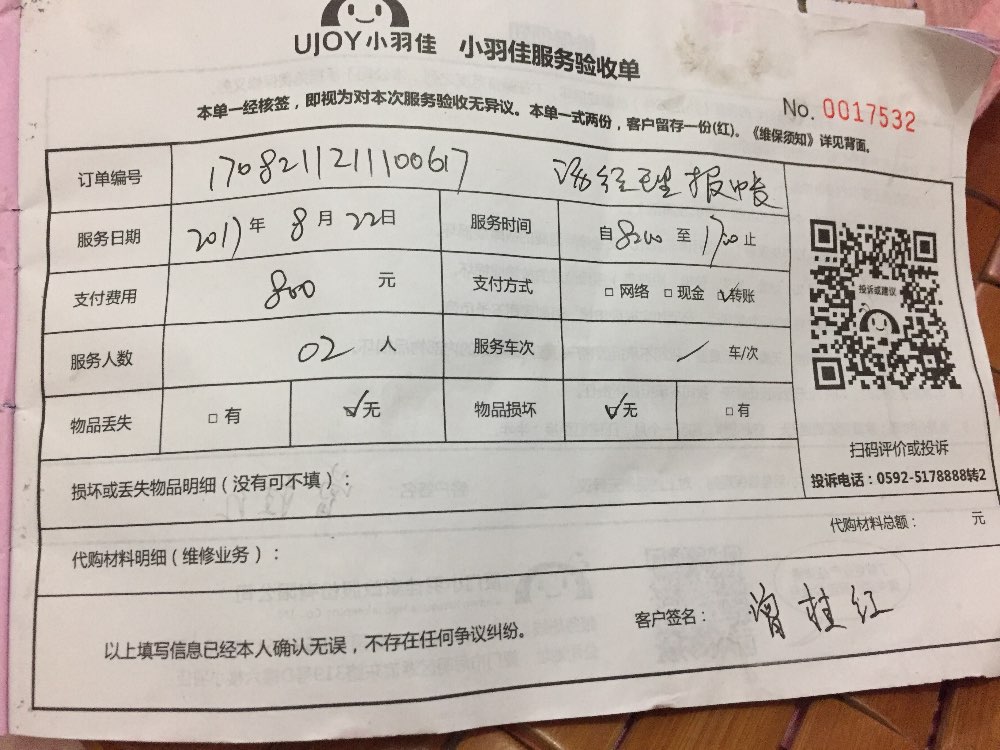 UJOY小羽佳 小羽佳服务验收单
本单一经核签，即视为对本次服务验收无异议。本单一式两份，客户留存一份(红)。《维保须知》详见背面。
No. 0017532
订单编号 170821121100617 经理报帐
服务日期 2017年8月22日 服务时间 自8:00至17:00止
支付费用 800 元 支付方式 □网络 □现金 ☑转账
服务人数 02 人 服务车次 / 车/次
物品丢失 □有 ☑无 物品损坏 ☑无 □有
投诉或建议
扫码评价或投诉
投诉电话：0592-5178888转2
损坏或丢失物品明细（没有可不填）：
代购材料总额： 元
代购材料明细（维修业务）：
以上填写信息已经本人确认无误，不存在任何争议纠纷。
客户签名： 曾桂红